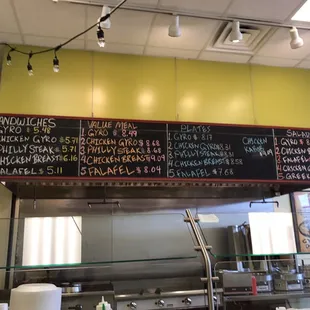 SANDWICHES
GYRO $ 5.48
CHICKEN GYRO $5.71
PHILLY STEAK $5.71
CHICKEN BREAST $6.16
FALAFEL $ 5.11
VALUE MEAL
1. GYRO $ 8.49
2 CHICKEN GYRO $ 8.68
3 PHILLY STEAK $ 8.68
4 CHICKEN BREAST $9.04
5 FALAFEL $ 8.04
PLATES
1. GYRO $8.17
2 CHICKEN GYRO $8.31
3 PHILLY STEAK $8.31
4 CHICKEN BREAST $8.58
5. FALAFEL $ 7.68
CHICKEN
SALADS
1. GYRO
2. CHICKEN
3. FALAFEL
4. CHICKEN
5. GREEK